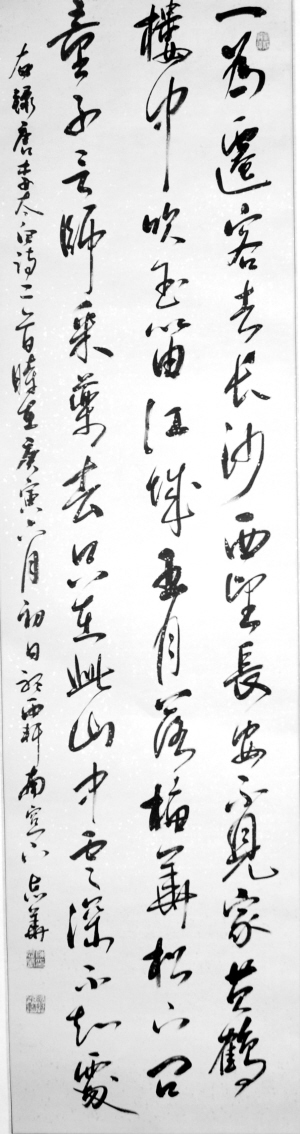 一為遷客去長沙西望長安不見家黃鶴
樓中吹玉笛江城五月落梅華松下問
童子言師采藥去只在此山中雲深不知處
右錄唐李太白詩二首時在庚寅六月初日於西軒南窗下